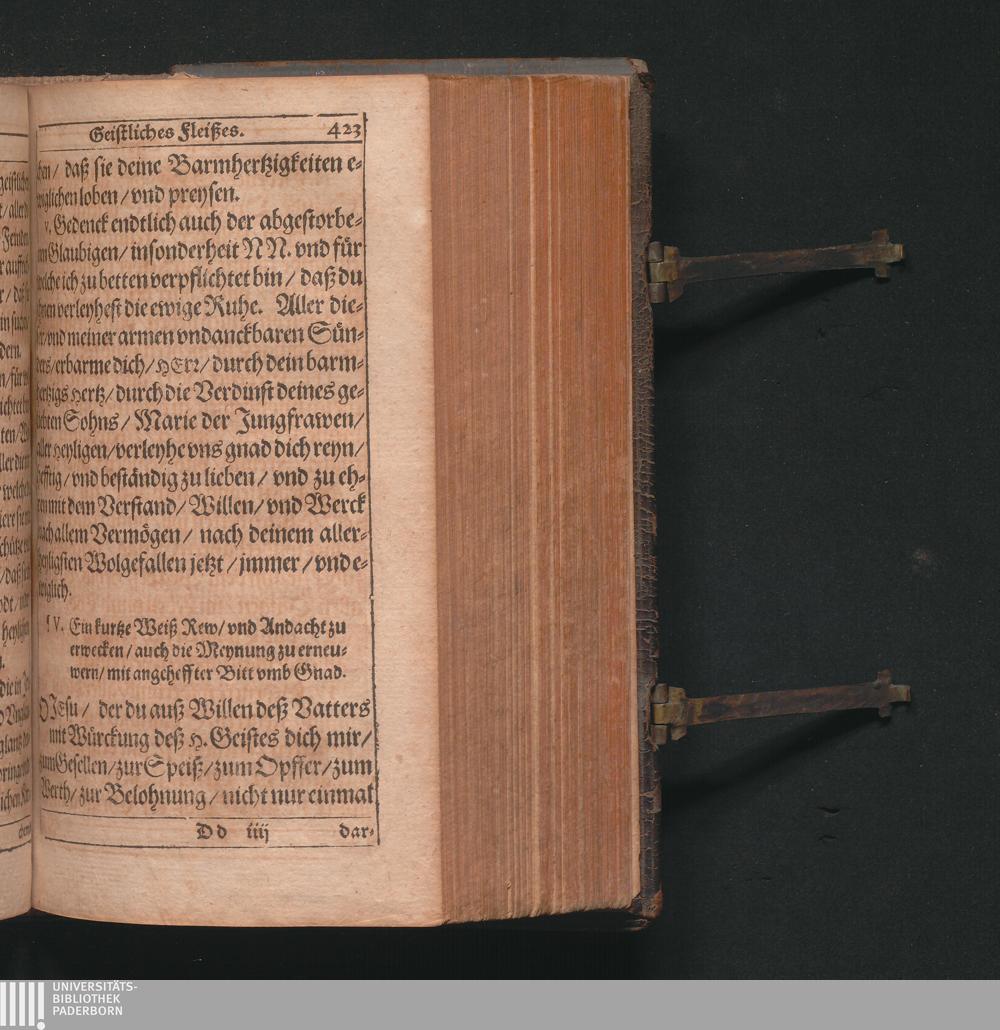 Geistliches Fleißes. 423
chen / daß sie deine Barmhertzigkeiten e-
wiglichen loben / vnd preysen.
v. Gedenck endtlich auch der abgestorbe-
nen Glaubigen / insonderheit NN. vnd für
welche ich zu betten verpflichtet bin / daß du
ihnen verleyhest die ewige Ruhe. Aller die-
ser / vnd meiner armen vndanckbaren Sün-
ders / erbarme dich / HErr / durch dein barm-
hertzigs Hertz / durch die Verdinst deines ge-
liebten Sohns / Marie der Jungfrawen /
aller Heyligen / verleyhe vns gnad dich reyn /
hefftig / vnd beständig zu lieben / vnd zu eh-
ren mit dem Verstand / Willen / vnd Werck
nach allem Vermögen / nach deinem aller-
heyligsten Wolgefallen jetzt / jmmer / vnd e-
wiglich.
IV. Ein kurtze Weiß Rew / vnd Andacht zu
erwecken / auch die Meynung zu erneu-
wern / mit angeheffter Bitt vmb Gnad.
O JEsu / der du auß Willen deß Vatters
mit Würckung deß H. Geistes dich mir /
zum Gesellen / zur Speiß / zum Opffer / zum
Werth / zur Belohnung / nicht nur einmal
Dd iiij dar-
UNIVERSITÄTS-
BIBLIOTHEK
PADERBORN